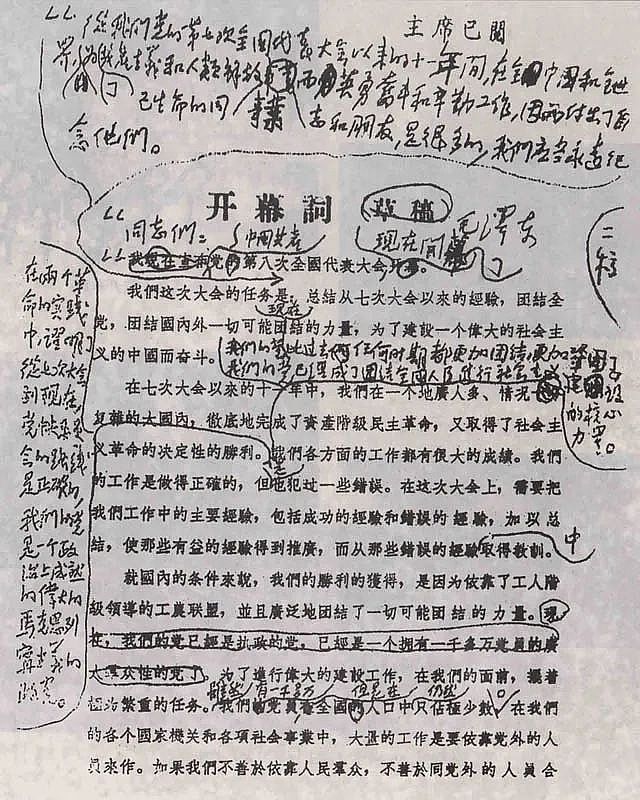 主席已閱
從我們党的第七次全國代表大会以来的十一年间，在全中國和全世
界，为共产主义和人類解放事而英勇奮斗和辛勤工作，因而付出了自
己生命的同志和朋友，是很多的，我們应当永遠紀
念他們。
开幕詞 草稿
毛澤東
同志們：
中國共產
现在開
二稿
我現在宣布党的第八次全國代表大会开幕。
我們这次大会的任务是：总結从七次大会以來的經驗，团結全
现在
党，团結國內外一切可能团結的力量，为了建設一个偉大的社会主
义的中國而奋斗。
我們的党比过去任何时期都更加团結，更加
我們的党已經成了团結全國人民進行社会主
义建設
的核心
力量。
在七次大会以來的十一年中，我們在一个地廣人多、情况
复雜的大國內，徹底地完成了資產階級民主革命，又取得了社会主
义革命的决定性的勝利。我們各方面的工作都有很大的成績。我們
的工作是做得正確的，但也犯过一些錯誤。在这次大会上，需要把
我們工作中的主要經驗，包括成功的經驗和錯誤的經驗，加以总
結，使那些有益的經驗得到推廣，而从那些錯誤的經驗取得教訓。
中
就國內的条件來說，我們的勝利的獲得，是因为依靠了工人階
級領導的工農联盟，並且廣泛地团結了一切可能团結的力量。現
在，我們的党已經是执政的党，已經是一个拥有一千多万党員的廣
大羣众性的党了。为了進行偉大的建設工作，在我們的面前，擺着
極为繁重的任务。
雖然 有一千多万 但是在 仍然
我們的党員在全國的人口中只佔極少數。在我們
的各个國家機关和各項社会事業中，大量的工作是要依靠党外的人
員來作。如果我們不善於依靠人民羣众，不善於同党外的人員合
在兩个革
命的实踐
中，證明了
從七次大会
到現在，
党中央委員
会的路線
是正確的，
我們的党
是一个政
治上成熟
的偉大的
馬克思列
寧主义的
政党。